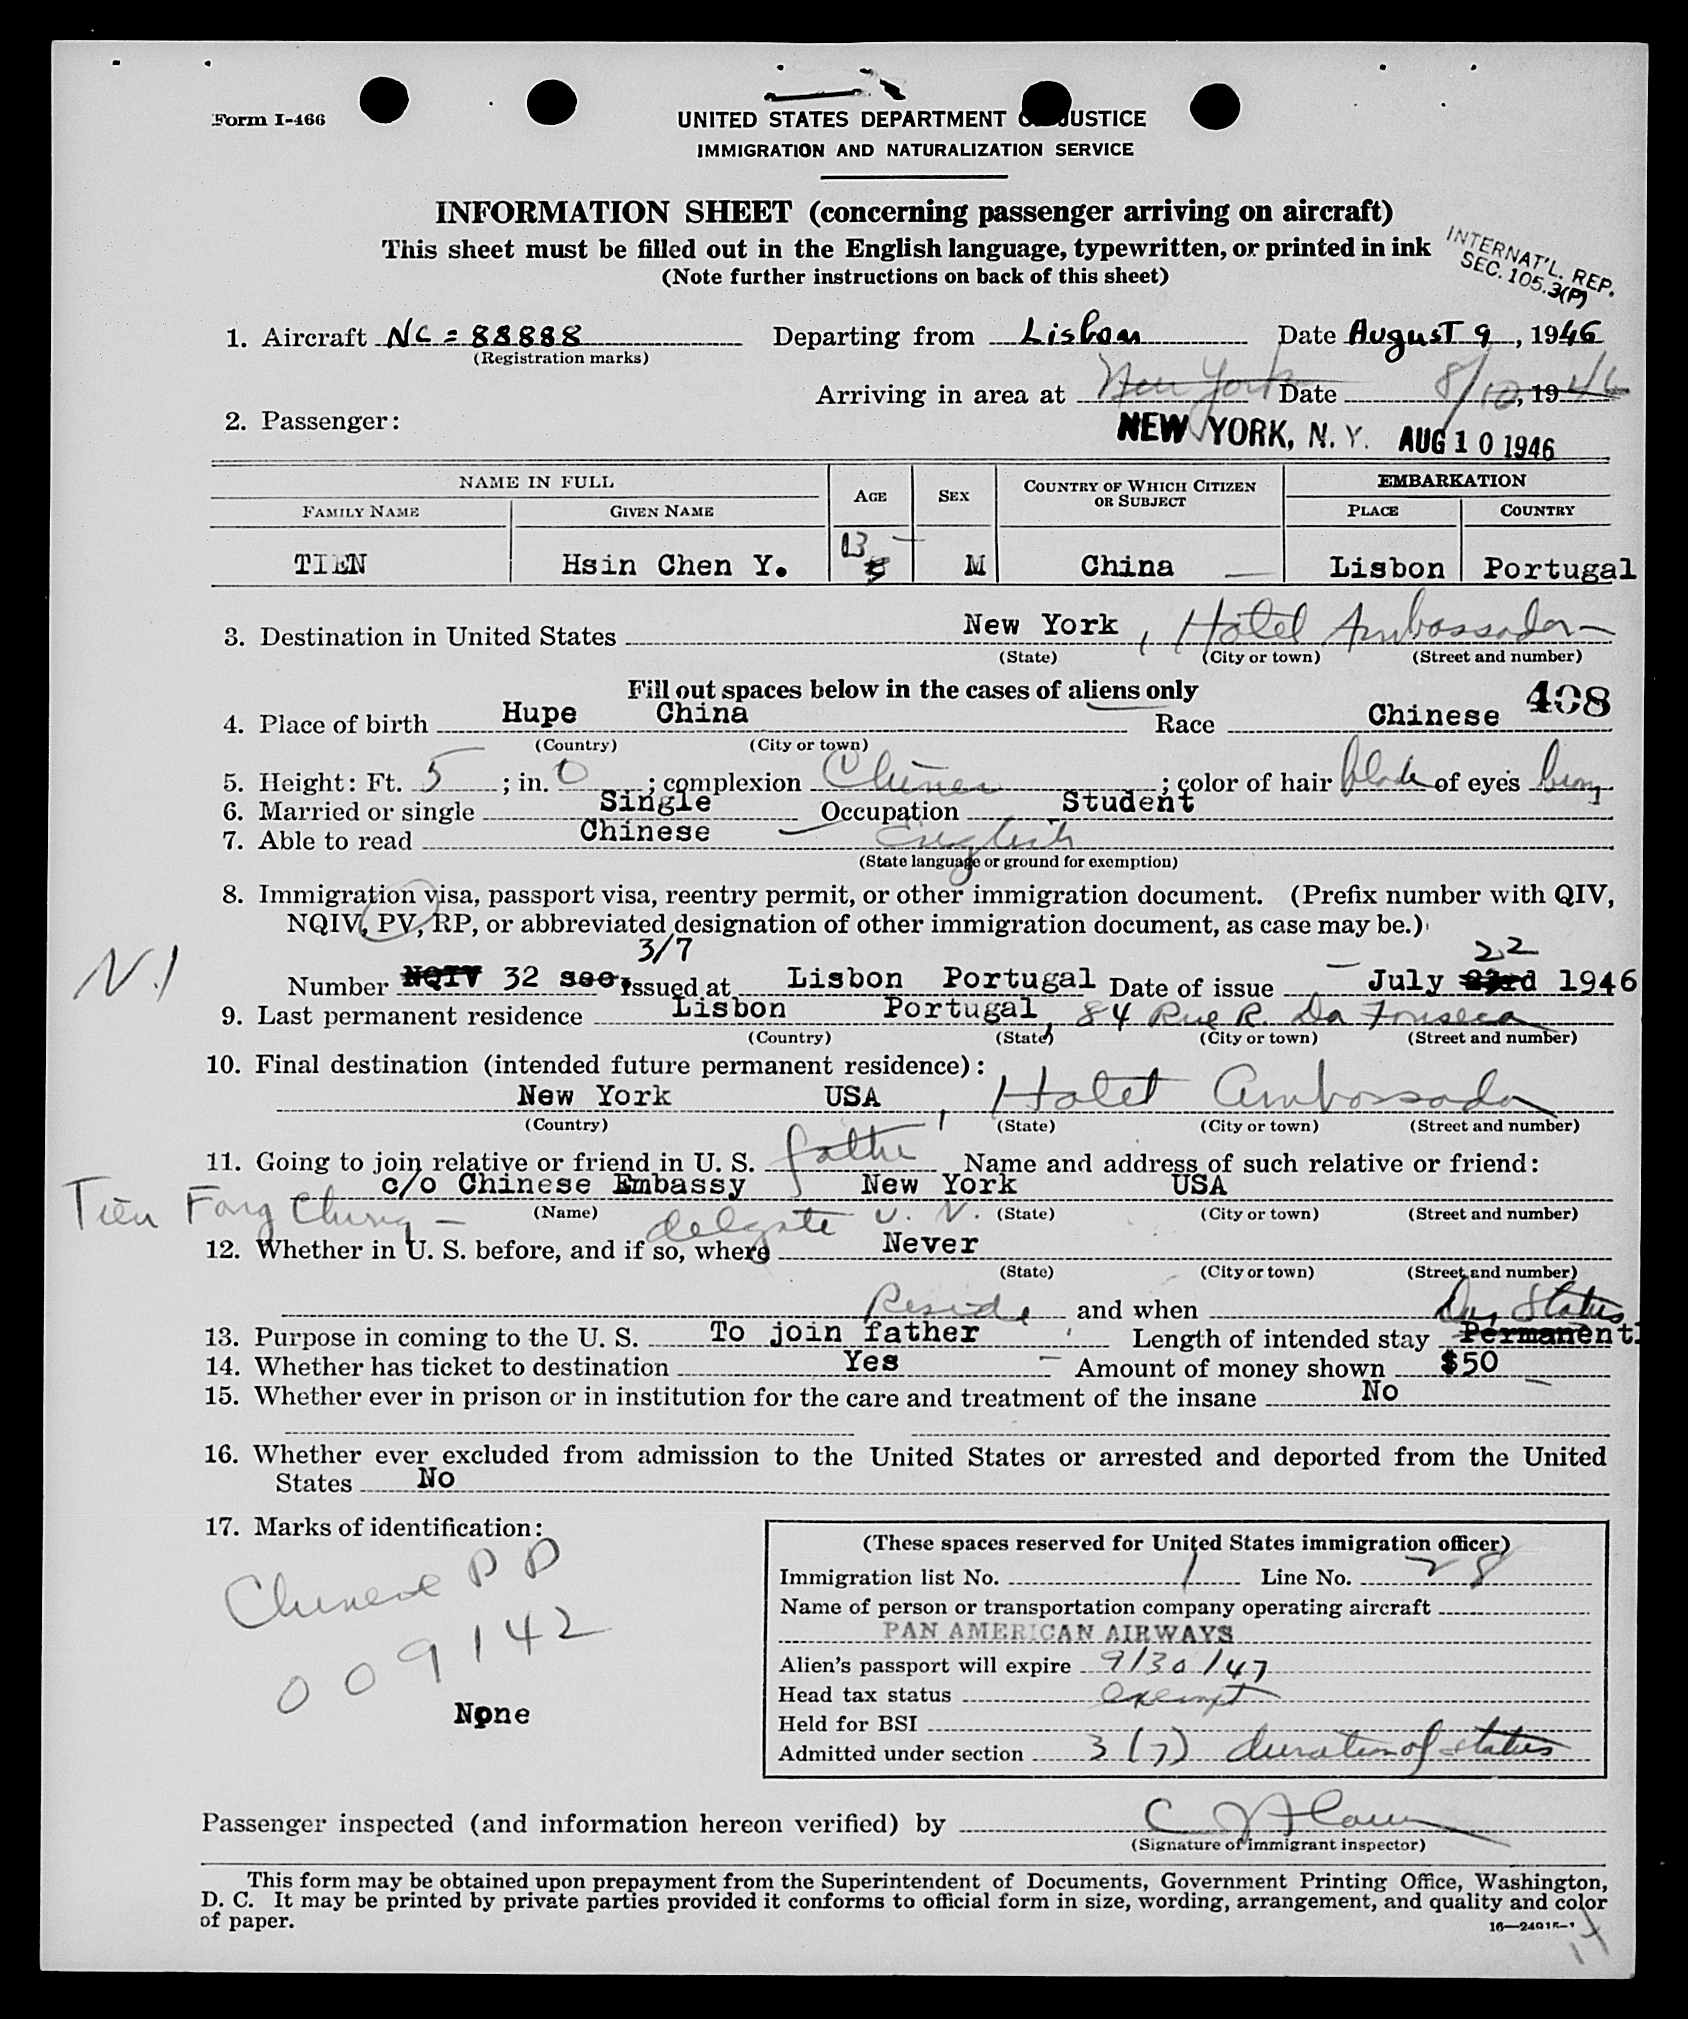 Form I-466
UNITED STATES DEPARTMENT OF JUSTICE
IMMIGRATION AND NATURALIZATION SERVICE
INFORMATION SHEET (concerning passenger arriving on aircraft)
This sheet must be filled out in the English language, typewritten, or printed in ink
(Note further instructions on back of this sheet)
INTERNAT'L. REP.
SEC. 105.3(P)
1. Aircraft NC = 88888 Departing from Lisbon Date August 9, 1946
(Registration marks)
Arriving in area at New York Date 8/10, 1946
2. Passenger:
NEW YORK, N. Y. AUG 10 1946
NAME IN FULL AGE SEX COUNTRY OF WHICH CITIZEN OR SUBJECT EMBARKATION
FAMILY NAME GIVEN NAME PLACE COUNTRY
TIEN Hsin Chen Y. 13 M China Lisbon Portugal
3. Destination in United States New York, Hotel Ambassador
(State) (City or town) (Street and number)
Fill out spaces below in the cases of aliens only
408
4. Place of birth Hupe China Race Chinese
(Country) (City or town)
5. Height: Ft. 5; in. 0; complexion Chinese; color of hair black of eyes brown
6. Married or single Single Occupation Student
7. Able to read Chinese English
(State language or ground for exemption)
8. Immigration visa, passport visa, reentry permit, or other immigration document. (Prefix number with QIV,
NQIV, PV, RP, or abbreviated designation of other immigration document, as case may be.)
3/7 22
N.I
Number NQIV 32 sec Issued at Lisbon Portugal Date of issue July 23rd 1946
9. Last permanent residence Lisbon Portugal, 84 Rue R. Da Fonseca
(Country) (State) (City or town) (Street and number)
10. Final destination (intended future permanent residence):
New York USA, Hotel Ambassador
(Country) (State) (City or town) (Street and number)
11. Going to join relative or friend in U. S. father Name and address of such relative or friend:
c/o Chinese Embassy New York USA
Tien Fong Ching - delegate U. N.
(Name) (State) (City or town) (Street and number)
12. Whether in U. S. before, and if so, where Never
(State) (City or town) (Street and number)
Reside and when Dur Status
13. Purpose in coming to the U. S. To join father Length of intended stay Permanentl
14. Whether has ticket to destination Yes Amount of money shown $50
15. Whether ever in prison or in institution for the care and treatment of the insane No
16. Whether ever excluded from admission to the United States or arrested and deported from the United
States No
17. Marks of identification:
Chinese P P
009142
None
(These spaces reserved for United States immigration officer)
Immigration list No. 1 Line No. 28
Name of person or transportation company operating aircraft
PAN AMERICAN AIRWAYS
Alien's passport will expire 9/30/47
Head tax status exempt
Held for BSI
Admitted under section 3 (7) duration of status
Passenger inspected (and information hereon verified) by
(Signature of immigrant inspector)
This form may be obtained upon prepayment from the Superintendent of Documents, Government Printing Office, Washington,
D. C. It may be printed by private parties provided it conforms to official form in size, wording, arrangement, and quality and color
of paper.